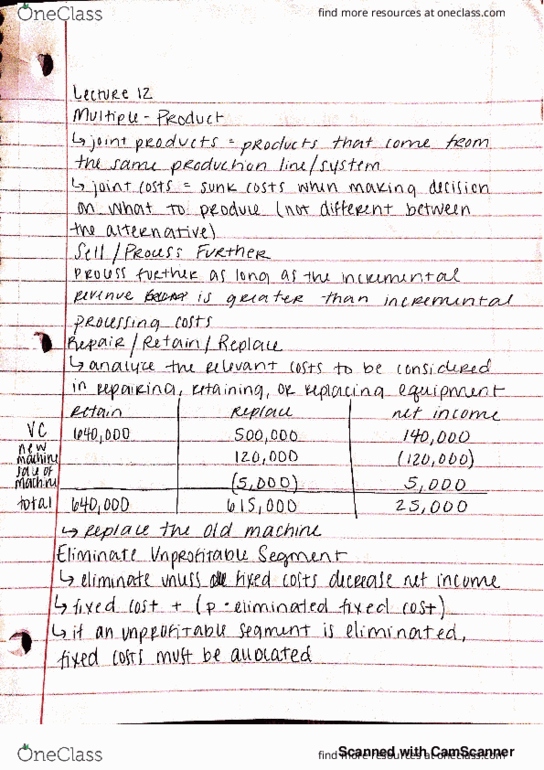 OneClass
find more resources at oneclass.com
Lecture 12
Multiple-Product
↳ joint products = products that come from
the same production line/system
↳ joint costs = sunk costs when making decision
on what to produce (not different between
the alternative)
Sell/Process Further
process further as long as the incremental
revenue is greater than incremental
processing costs
Repair/Retain/Replace
↳ analyze the relevant costs to be considered
in repairing, retaining, or replacing equipment
retain replace net income
VC 640,000 500,000 140,000
new machine 120,000 (120,000)
sale of machine (5,000) 5,000
total 640,000 615,000 25,000
↳ replace the old machine
Eliminate Unprofitable Segment
↳ eliminate unless fixed costs decrease net income
↳ fixed cost + (p · eliminated fixed cost)
↳ if an unprofitable segment is eliminated,
fixed costs must be allocated
OneClass
find more resources at oneclass.com
Scanned with CamScanner